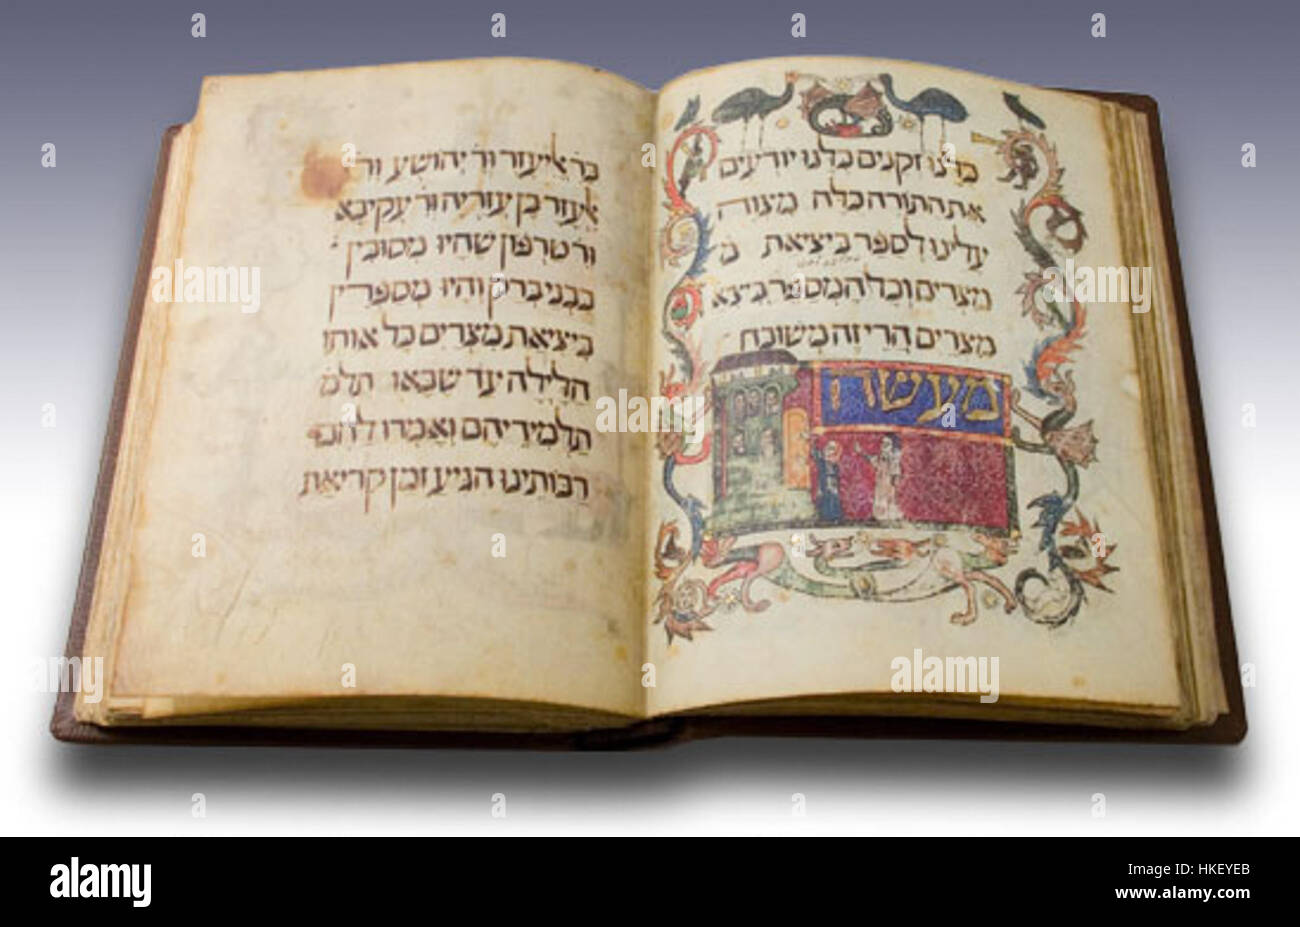 כלנו זקנים כלנו יודעים
את התורה כלה מצוה
עלינו לספר ביציאת מ
מצרים וכל המספר ביצא
מצרים הרי זה משובח
מעשה
בר אליעזר ור יהושע ור
אלעזר בן עזריה ור עקיבא
ור טרפון שהיו מסובין
בבני ברק והיו מספרין
ביציאת מצרים כל אותו
הלילה עד שבאו תלמ
תלמידיהם ואמרו להם
רבותינו הגיע זמן קריאת
alamy
alamy
alamy
a alamy
HKEYEB
www.alamy.com